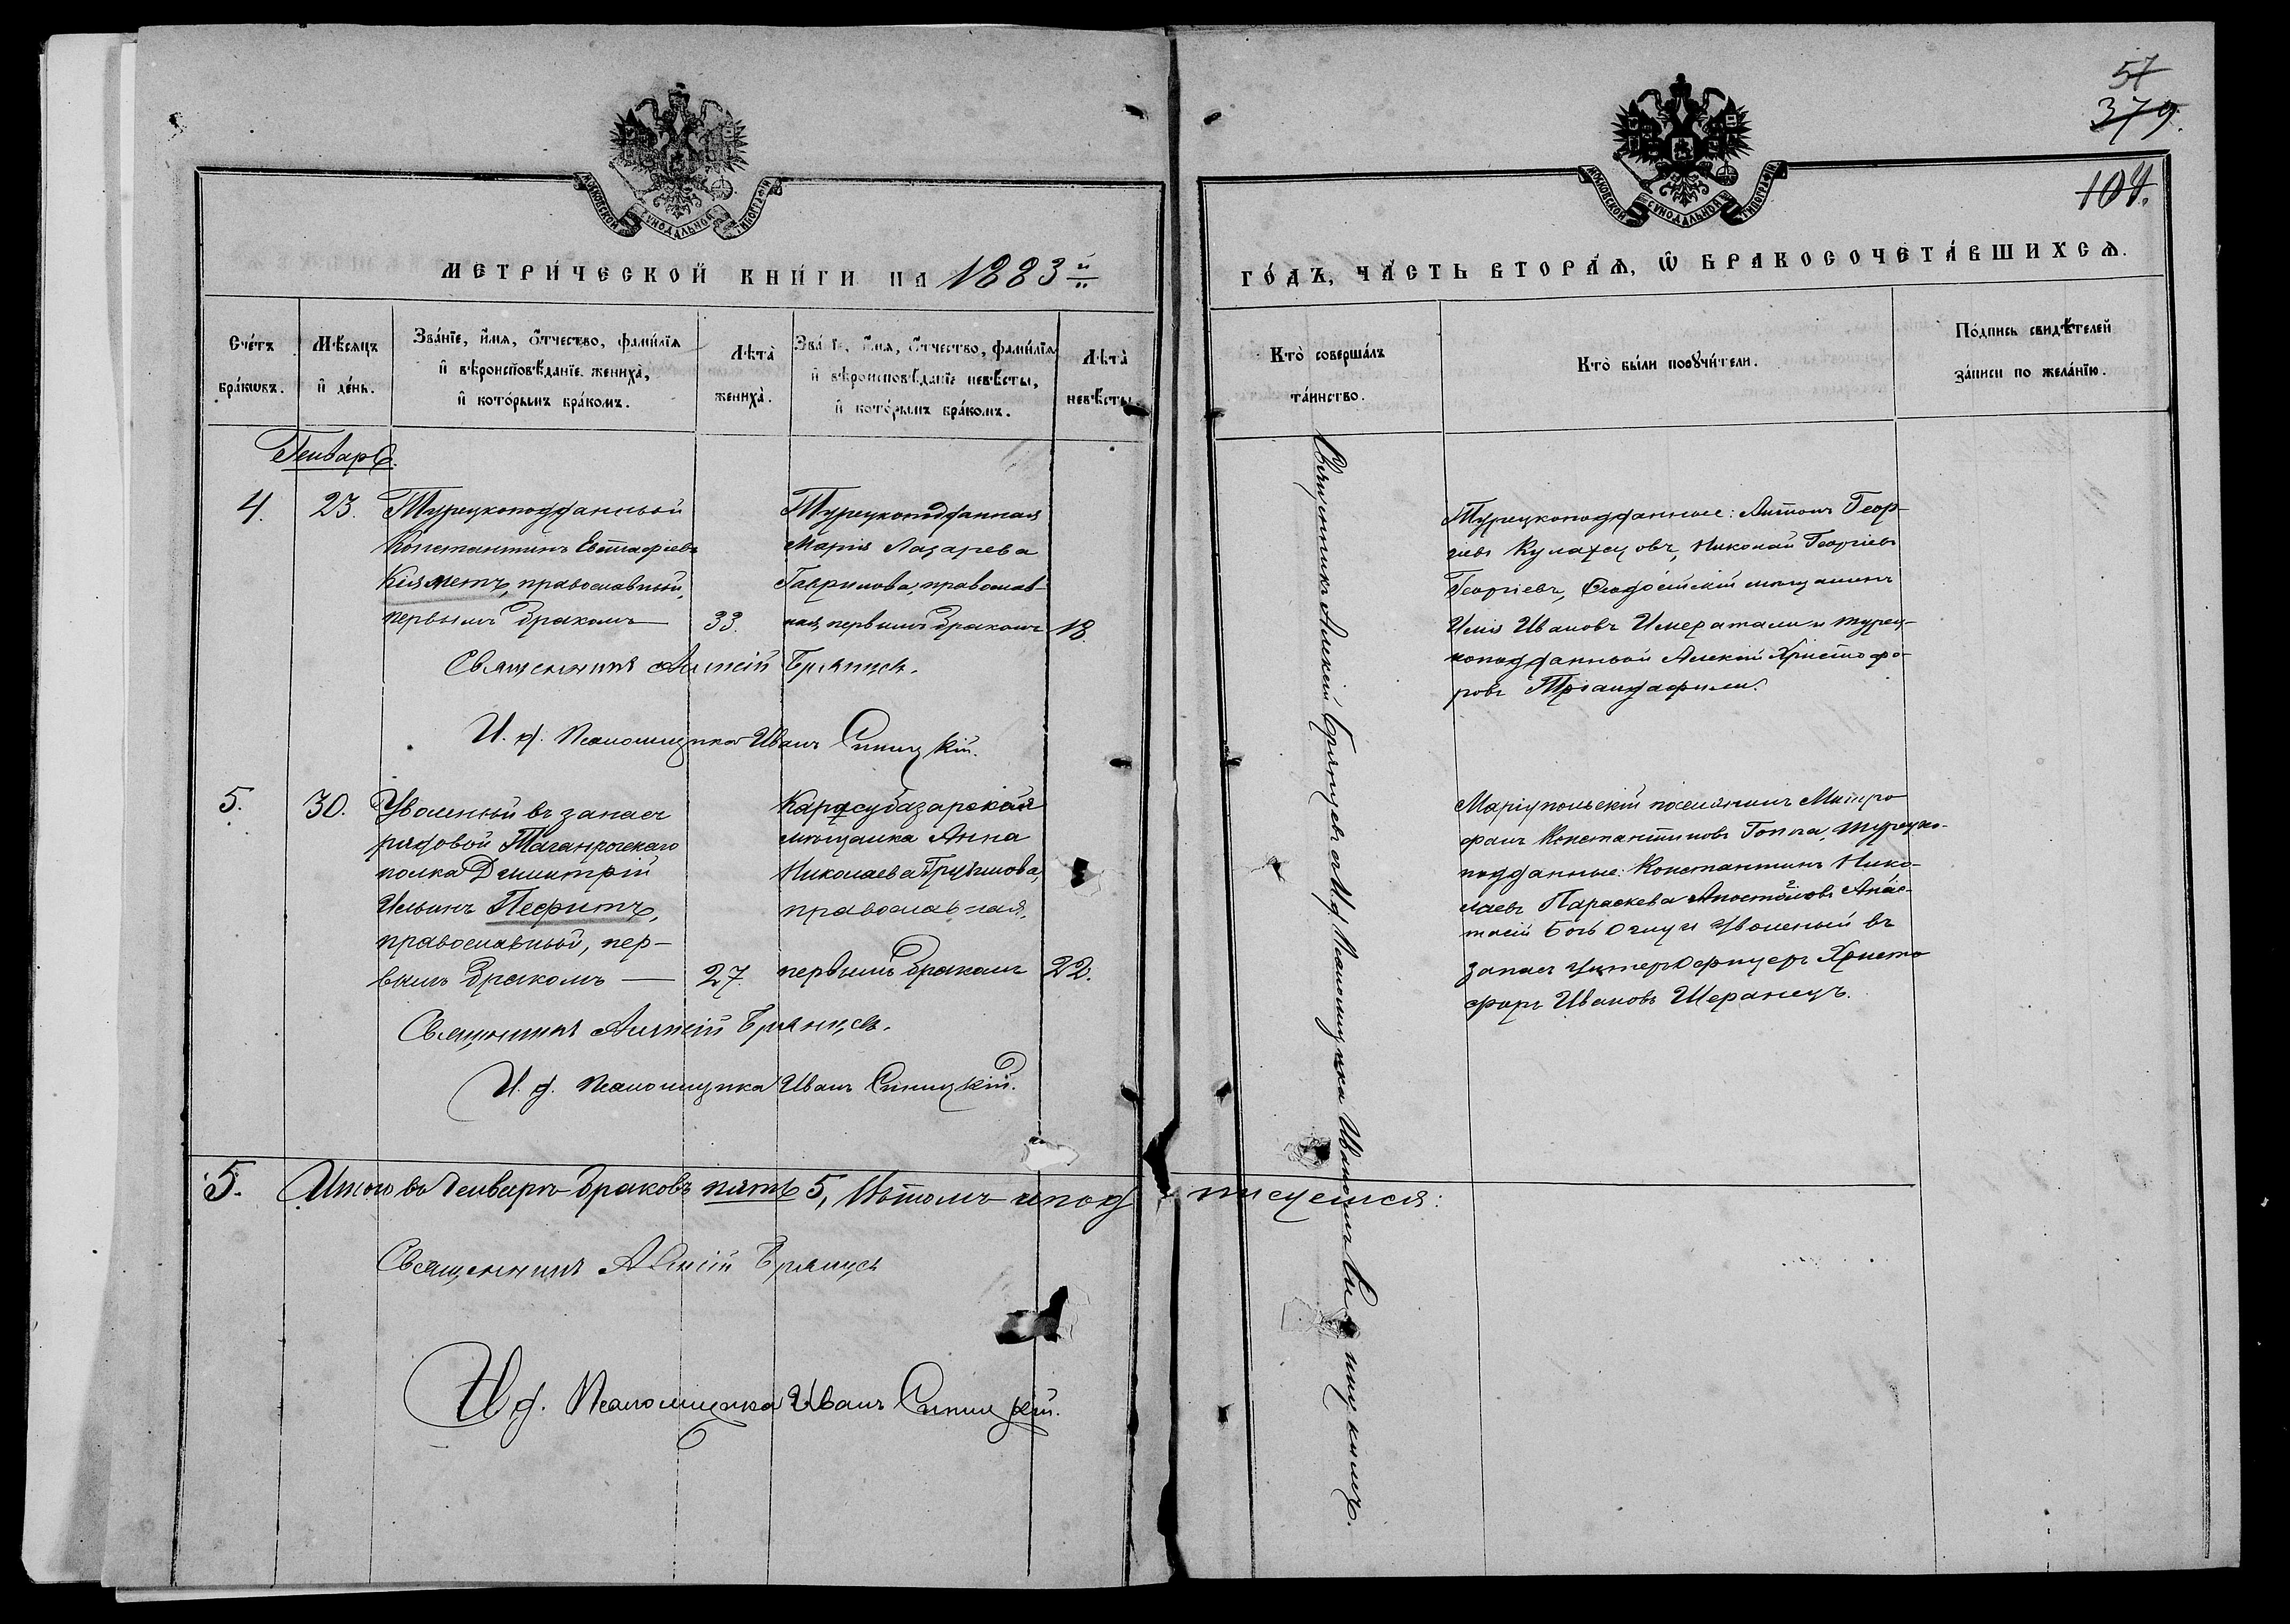 57
379.
104.
МОСКОВСКОЙ СѴНОДАЛЬНОЙ ТИПОГРАФІИ
МОСКОВСКОЙ СѴНОДАЛЬНОЙ ТИПОГРАФІИ
МЕТРИ́ЧЕСКОЙ КНИ́ГИ НА 1883й
ГО́ДЪ, ЧА́СТЬ ВТОРА́Ѧ, Ѽ БРАКОСОЧЕТА́ВШИХСѦ.
Сче́тъ бра́кѡвъ.
Мѣ́сяцъ и҆ де́нь.
Зва́нїе, и҆́мя, ѻ҆́тчество, фами́лїя
и҆ вѣроисповѣ́данїе жениха̀,
и҆ кото́рымъ бра́комъ.
Лѣта̀ жениха̀.
Зва́нїе, и҆́мя, ѻ҆́тчество, фами́лїя
и҆ вѣроисповѣ́данїе невѣ́сты,
и҆ кото́рымъ бра́комъ.
Лѣта̀ невѣ́сты
Кто̀ соверша́лъ
та́инство.
Кто̀ бы́ли порꙋчи́тели.
По́дпись свидѣ́телей
за́писи по жела́нїю.
Генварь.
4.
23.
Турецкоподданный
Константинъ Евстафіевъ
Кіяметъ, православный,
первымъ бракомъ
33.
Турецкоподданная
Марія Лазарева
Гаврилова, православ-
ная, первымъ бракомъ
18.
Турецкоподданные: Антонъ Геор-
гіевъ Николай Георгіевъ
Георгіевъ, Ѳеодосійскій мѣщанинъ
Илія Ивановъ и турец-
коподданный Алексій Христофо-
ровъ Тріандафили.
Священникъ Алексій Брянцевъ.
И. д. Псаломщика Иванъ Синицкій.
5.
30.
Уволенный въ запасъ
рядовой Таганрогскаго
полка Димитрій
Ильинъ Пефитъ,
православный, пер-
вымъ бракомъ
27.
Карасубазарская
мѣщанка Анна
Николаева
православная,
первымъ бракомъ
22.
Маріупольскій поселянинъ Митро
фанъ Константиновъ Гонпа, турецко-
подданные: Константинъ Нико-
лаевъ Параскева Апостоловъ Анас-
тасій уволенный въ
запасъ унтеръ Офицеръ Христо
форъ Ивановъ Шеранецъ.
Священникъ Алексій Брянцевъ.
И. д. Псаломщика Иванъ Синицкій.
Священникъ Алексій Брянцевъ съ И.д. Псаломщика Иваномъ Синицкимъ.
5. Итого въ Генварѣ браковъ пять 5, Въ томъ и подписуемся:
Священникъ Алексій Брянцевъ
И д. Псаломщика Иванъ Синицкій.